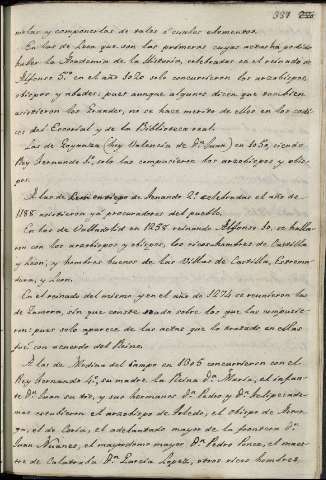 337 226
nerlas y componerlas de tales ó cuales elementos.
En las de Leon que son las primeras cuyas actas ha podido
haber la Academia de la Historia, celebradas en el reinado de
Alfonso 5.º en el año 1020 solo concurrieron los arzobispos
obispos y abades; pues aunque algunos dicen que tambien
asistieron los Grandes, no se hace merito de ellos en los codi-
ces del Escorial y de la Biblioteca real.
Las de Coyanza (hoy Valencia de Dn. Juan) en 1050, siendo
Rey Fernando 1.º, solo las compusieron los arzobispos y obis-
pos.
A las de Leon en tiempo de Fernando 2.º celebradas el año de
1188 asistieron ya procuradores del pueblo.
En las de Valladolid en 1258 reinando Alfonso 10, se halla-
ron con los arzobispos y obispos, los ricos hombres de Castilla
y Leon, y hombres buenos de las Villas de Castilla, Estrema-
dura, y Leon.
En el reinado del mismo y en el año de 1274 se reunieron las
de Zamora, sin que conste cuales sobre los que las compusie-
ron: pues solo aparece de las actas que lo tratado en ellas
fué con acuerdo del Reino.
A las de Medina del Campo en 1305 concurrieron con el
Rey Fernando 4.º, su madre la Reina Dª Maria, el infan-
te Dn. Juan su tio, y sus hermanos Dn. Pedro y Dn. Felipe; ade-
mas acudieron el arzobispo de Toledo, el obispo de Astor-
ga, el de Coria, el adelantado mayor de la frontera Dn.
Juan Nuñez, el mayordomo mayor Dn. Pedro Ponce, el maes-
tre de Calatrava Dn. Garcia Lopez, otros ricos hombres,